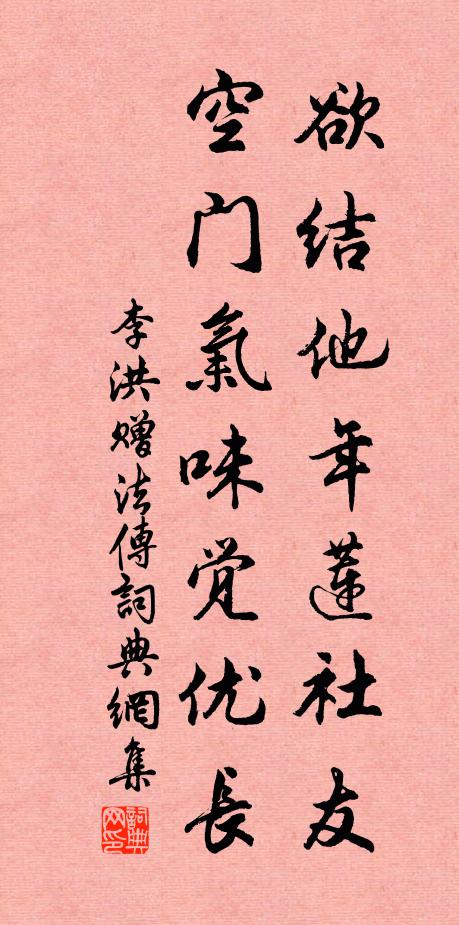 欲结他年蓮社友
空门氣味觉优長
李洪赠法傳詞典網集
詞典网印